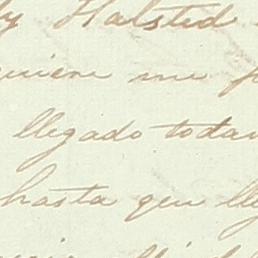 ly Halsted
quiere me p
llegado todav
hasta que lle